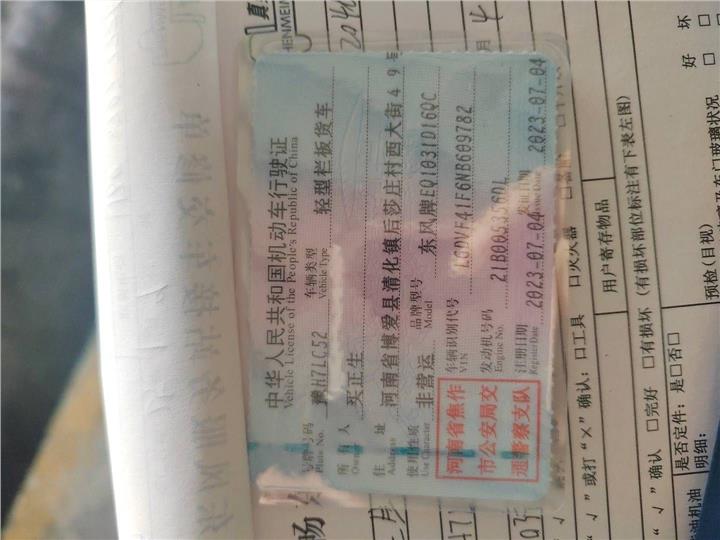 中华人民共和国机动车行驶证
Vehicle License of the People's Republic of China
号牌号码 豫H7LC52 车辆类型 轻型栏板货车
Plate No. Vehicle Type
所有人 买正生
Owner
住址 河南省博爱县清化镇后莎庄村西大街49号
Address
使用性质 非营运 品牌型号 东风牌EQ1031D16QC
Use Character Model
河南省焦作
市公安局交
通警察支队
车辆识别代号 LGDVF41F6NB609782
VIN
发动机号码 21B005356DL
Engine No.
注册日期 2023-07-04 发证日期 2023-07-04
Register Date Issue Date
HENMEI
月 4
口工具 口灭火器
用户寄存物品
"√"或打"×"确认:
"√"确认 口完好 口有损坏(有损坏部位标注有下表左图)
是否定件:是口否口
明细:
预检(目视)
好 坏
油机油